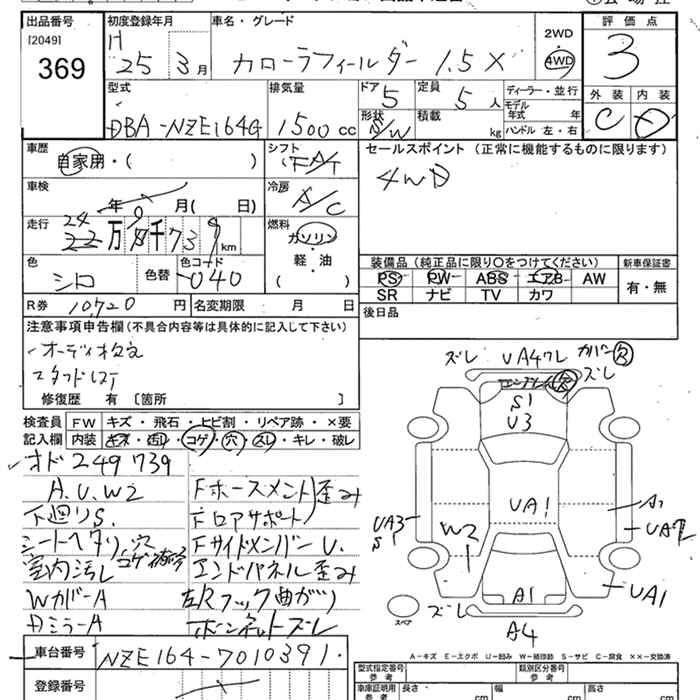 出品番号
[2049]
369
初度登録年月
H
25 3月
車名・グレード
カローラフィールダー 1.5 X
2WD
4WD
評価点
3
外装 内装
C D
型式
DBA-NZE164G
排気量
1500 cc
ドア
5
形状
S/W
定員
5人
積載
kg
ディーラー・並行
モデル
年式 年
ハンドル 左・右
車歴
自家用・( )
シフト
FA/T
セールスポイント (正常に機能するものに限ります)
4WD
車検
年 9月( 日)
冷房
A/C
走行
24
22万 8千 7 3 9 km
燃料
ガソリン
軽・油
( )
色
シロ
色替
色コード
040
装備品 (純正品に限り○をつけてください)
PS PW ABS エアB AW
SR ナビ TV カワ
新車保証書
有・無
R券 10720円
名変期限 月 日
後日品
注意事項申告欄 (不具合内容等は具体的に記入して下さい)
修復歴 有 〔箇所 〕
検査員
記入欄
FW キズ・飛石・ヒビ割・リペア跡・×要
内装 キズ・汚れ・コゲ・穴・スレ・キレ・破レ
オド249739
A.U.W2
下廻りS.
シートヘタリ、穴
室内汚レ コゲ
WカバーA
DミラーA
Fホースメント 歪み
Fロアサポート
FサイドメンバーU.
エンドパネル歪み
左Rフック曲がり
ボンネットズレ
車台番号
NZE164-7010391.
登録番号
ズレ UA4ワレ カバー欠
ズレ
S1
U3
UA1
UA3
S
W2
A1
UA2
UA1
A1
ズレ
A4
スペア
A-キズ E-エクボ U-凹み W-補修跡 S-サビ C-腐食 ××-交換済
型式指定番号
参考
類別区分番号
参考
車庫証明用
参考
長さ cm
幅 cm
高さ cm